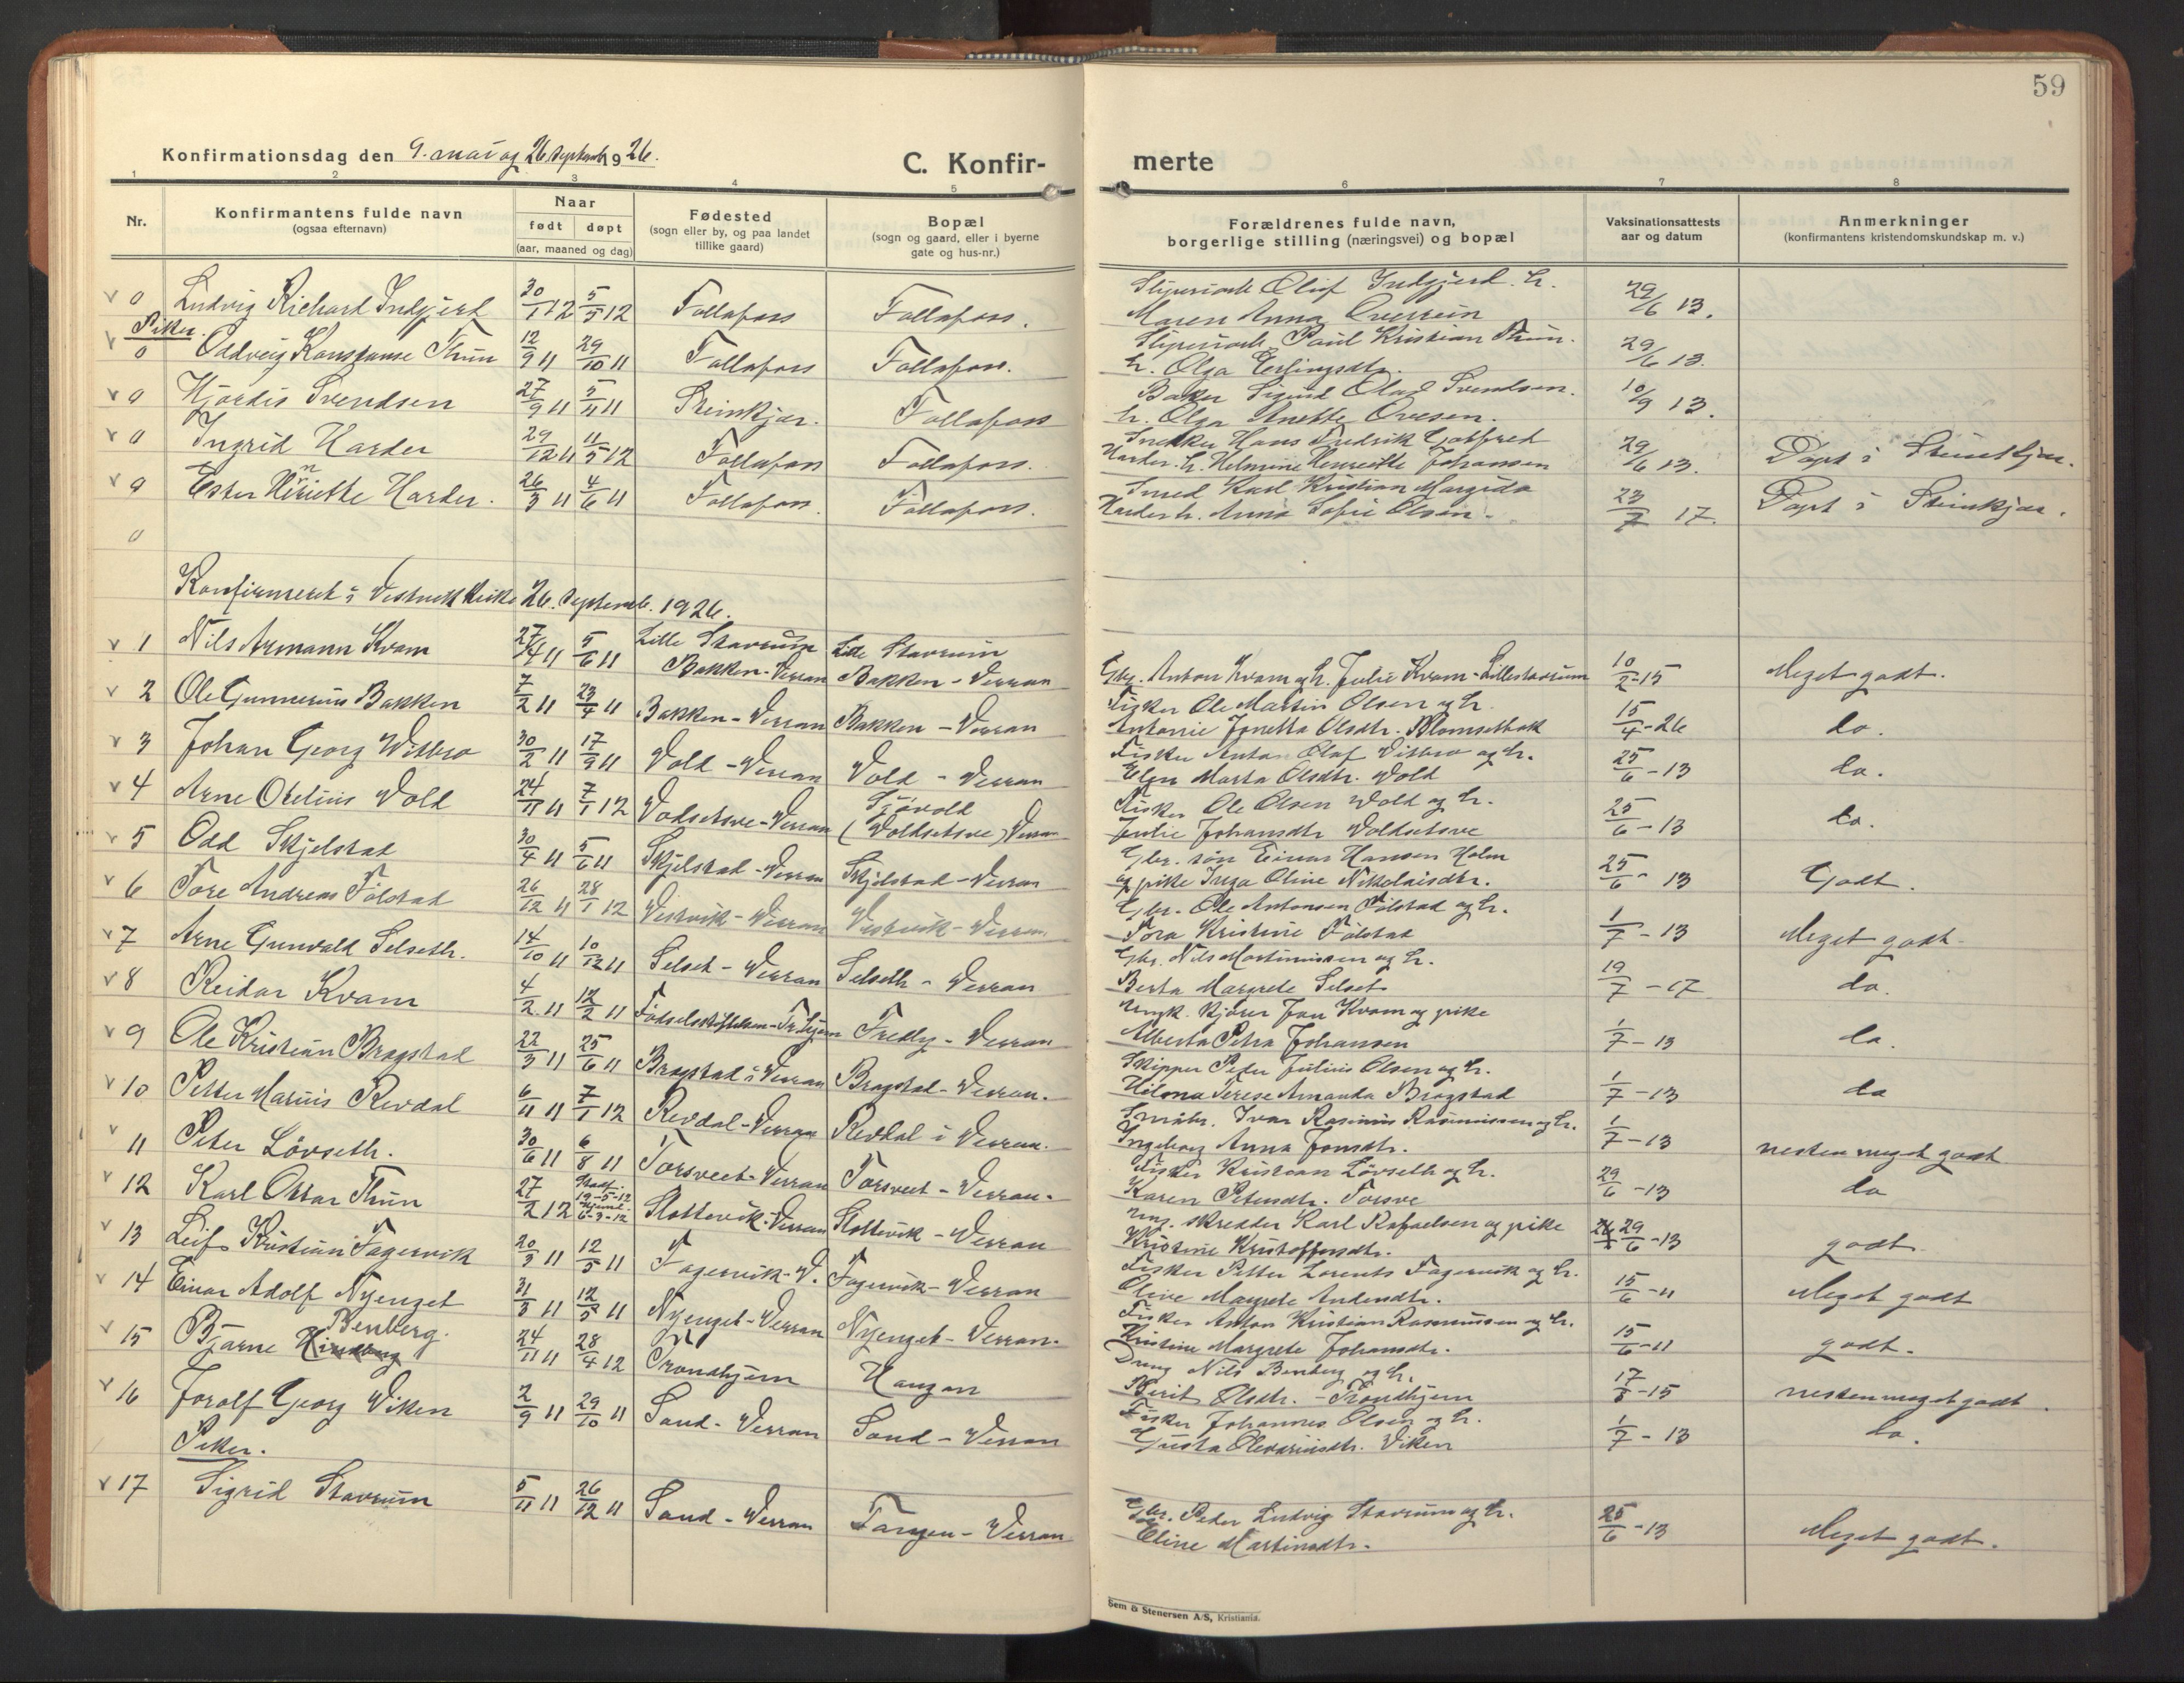 59
Konfirmationsdag den 9. mai og 26 septemb. 1926.
C. Konfir-
merte
1 2 3 4 5 6 7 8
Nr.
Konfirmantens fulde navn
(ogsaa efternavn)
Naar
født døpt
(aar, maaned og dag)
Fødested
(sogn eller by, og paa landet
tillike gaard)
Bopæl
(sogn og gaard, eller i byerne
gate og hus-nr.)
Forældrenes fulde navn,
borgerlige stilling (næringsvei) og bopæl
Vaksinationsattests
aar og datum
Anmerkninger
(konfirmantens kristendomskundskap m. v.)
v 0 Ludvig Richard Indgjerd 30/1 12 5/5 12 Follafoss Follafoss. Sliperiarb. Oluf Indgjerd. h. Maren Anna 29/6 13.
Piker.
v 0 Oddveig Konstanse Thun 12/9 11 29/10 11 Follafoss Follafoss. Sliperiarb. Paul Kristian Thun. h. Olga Erlingsdtr. 29/6 13.
v 0 Hjørdis Svendsen 27/9 11 5/11 11 Steinkjær. Follafoss Baker Sigurd Olaf Svendsen. h. Olga Anette Ovesen. 10/9 13.
v 0 Ingrid Harder 29/12 11 11/5 12 Follafoss Follafoss. Snekker Hans Fredrik Gotfred Harder. h. Helmine Henriette Johansen 29/6 13. Døpt i Steinkjær.
v 0 Ester Henriette Harder. 26/3 11 4/6 11 Follafoss. Follafoss. Smed Karl Kristian Harder h. Anna Sofie Olsen. 23/7 17. Døpt i Steinkjær.
0
Konfirmeret i Vestvik kirke 26. septemb. 1926.
v 1 Nils Armann Kvam 27/4 11 5/6 11 Lille Stavrum Bakken - Verran Lille Stavrum Bakken - Verran Gbr. Anton Kvam og h. Julie Kvam - Lillestavrum 10/2-15 Meget godt.
v 2 Ole Gunnerius Bakken 7/2 11 23/4 11 Bakken - Verran Bakken - Verran Fisker Ole Martin Olsen og h. Antonie Jonetta Olsdtr. Blomsetbak 15/4-26 do.
v 3 Johan Georg Witbro 30/2 11 17/9 11 Vold - Verran Vold - Verran Fisker Anton Olaf Vitbro og h. Elen Marta Olsdtr. Vold 25/6-13 do.
v 4 Arne Otelius Vold 24/11 11 7/1 12 Voldsetsve - Verran Sjøvold (Voldsetsve) Verran Fisker Ole Olsen Vold og h. Julie Johansdtr Voldsetsve 25/6-13 do.
v 5 Odd Skjelstad 30/4 11 5/6 11 Skjelstad - Verran Skjelstad - Verran Gbr. søn Einar Hansen Holm og pike Inga Oline Nikolaisdtr. 25/6-13 Godt.
v 6 Tore Andreas Følstad 26/12 11 28/1 12 Vestvik - Verran Vestvik - Verran Gbr. Ole Antonsen Følstad og h. Tora Kristine Følstad 1/7-13 Meget godt.
v 7 Arne Gunvald Selseth. 14/10 11 10/12 11 Selset - Verran Selseth - Verran Gbr. Nils Martinussen og h. Berta Margrete Selset 19/7-17 do.
v 8 Reidar Kvam 4/2 11 12/2 11 Fødselsstiftelsen - Tr.hjem Fredly - Verran Ungk. kjører Jon Kvam og pike Alberta Petra Johansen 1/7-13 do.
v 9 Ole Kristian Bragstad 22/3 11 25/6 11 Bragstad i Verran Bragstad - Verran. Skipper Peder Julius Olsen og h. Hilma Terese Amanda Bragstad 1/7-13 do
v 10 Petter Marius Revdal 6/11 11 7/1 12 Revdal - Verran Revdal i Verran. Småbr. Ivar Rasmus Rasmussen og h. Ingeborg Anna Jonsdtr. 1/7-13 nesten meget godt
v 11 Peter Løvseth. 30/6 11 6/8 11 Torsveet - Verran Torsveet - Verran. Fisker Kristian Løvseth og h. Karen Petersdtr. Torsve 29/6-13 do
v 12 Karl Oskar Thun 27/2 12 Stadf. 19-5-12 Hjemd. 6-3-12 Slottevik - Verran Slottvik - Verran Ung. skredder Karl Rafaelsen og pike Kristine Kristoffersdtr. 29/6-13 godt.
v 13 Leif Kristian Fagervik 20/3 11 12/5 11 Fagervik - V. Fagervik - Verran Fisker Petter Lorents Fagervik og h. Oline Margrete Andersdtr. 15/6-11 Meget godt
v 14 Einar Adolf Nyenget 31/3 11 12/5 11 Nyenget - Verran Nyenget - Verran. Fisker Anton Kristian Rasmussen og h. Kristine Margrete Johansdtr. 15/6-11 godt.
v 15 Bjarne Benberg. 24/11 11 28/4 12 Trondhjem Haugan Dreng Nils Benberg og h. Berit Olsdtr. - Trondhjem 17/8-15 nesten meget godt.
v 16 Joralf Georg Viken 2/9 11 29/10 11 Sand - Verran Sand - Verran Fisker Johannes Olsen og h. Gusta Olevariusdtr. Viken 1/7-13 do.
Piker.
v 17 Sigrid Stavrum 5/11 11 26/12 11 Sand - Verran Tangen - Verran Gbr. Peder Ludvig Stavrum og h. Eline Martinsdtr. 25/6-13 Meget godt.
Sem & Stenersen A/S, Kristiania.